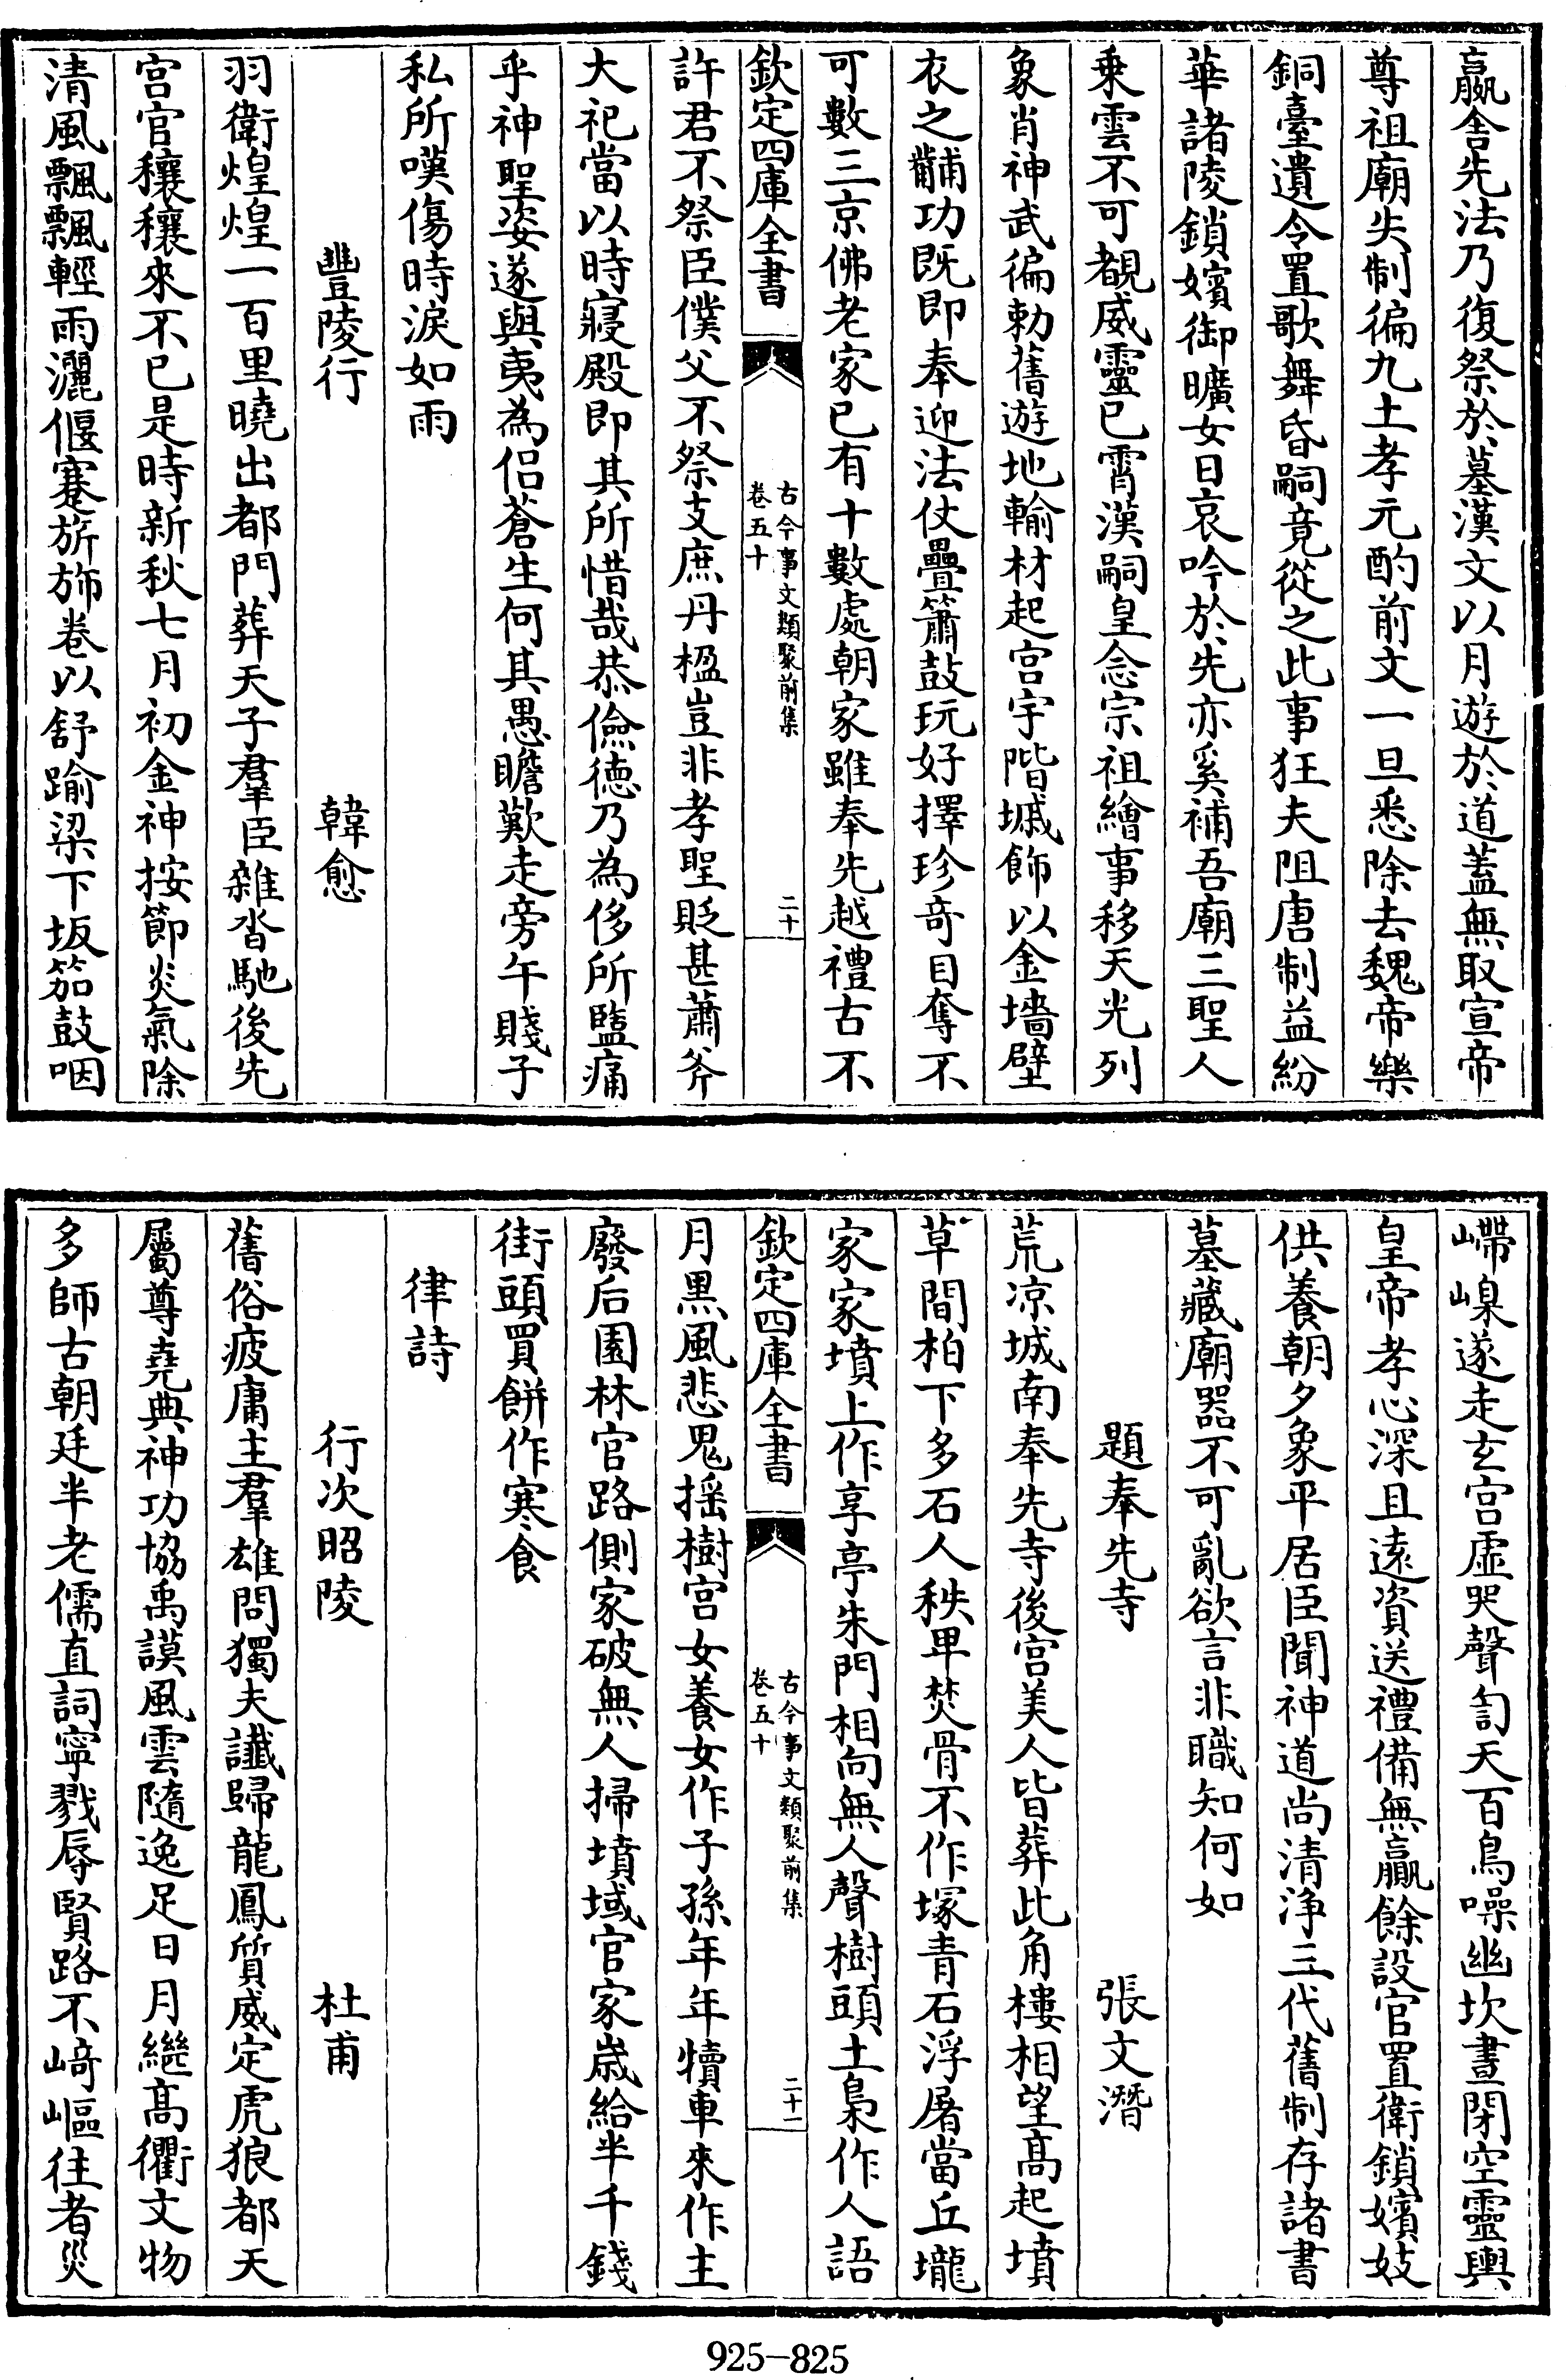 嬴舎先法乃復祭於墓漢文以月遊於道蓋無取宣帝
尊祖廟失制徧九土孝元酌前文一旦悉除去魏帝樂
銅臺遺令置歌舞昏嗣竟從之此事狂夫阻唐制益紛
華諸陵鎖嬪御曠女日哀吟於先亦奚補吾廟三聖人
乗雲不可覩威靈已霄漢嗣皇念宗祖繪事移天光列
象肖神武徧勅舊遊地輸材起宫宇階墄飾以金墻壁
衣之黼功既即奉迎法仗疊簫鼓玩好擇珍竒目奪不
可數三京佛老家已有十數處朝家雖奉先越禮古不
欽定四庫全書
古今事文類聚前集
卷五十
二十
許君不祭臣僕父不祭支庶丹楹豈非孝聖貶甚蕭斧
大祀當以時寢殿即其所惜哉恭儉徳乃為侈所蠱痛
乎神聖姿遂與夷為侣蒼生何其愚瞻歎走旁午賤子
私所嘆傷時淚如雨
豐陵行 韓愈
羽衛煌煌一百里曉出都門葬天子羣臣雜沓馳後先
宫官穰穰來不已是時新秋七月初金神按節炎氣除
清風飄飄輕雨灑偃蹇旂斾卷以舒踰梁下坂笳鼓咽
嵽嵲遂走玄宫虚哭聲訇天百鳥噪幽坎晝閉空靈輿
皇帝孝心深且遠資送禮備無贏餘設官置衛鎖嬪妓
供養朝夕象平居臣聞神道尚清浄三代舊制存諸書
墓藏廟器不可亂欲言非職知何如
題奉先寺 張文潛
荒凉城南奉先寺後宫美人皆葬此角樓相望髙起墳
草間柏下多石人秩卑焚骨不作塚青石浮屠當丘壠
家家墳上作享亭朱門相向無人聲樹頭土梟作人語
欽定四庫全書
古今事文類聚前集
卷五十
二十一
月黒風悲鬼揺樹宫女養女作子孫年年犢車來作主
廢后園林官路側家破無人掃墳域官家歳給半千錢
街頭買餅作寒食
律詩
行次昭陵 杜甫
舊俗疲庸主羣雄問獨夫䜟歸龍鳳質威定虎狼都天
屬尊堯典神功協禹謨風雲隨逸足日月繼髙衢文物
多師古朝廷半老儒直詞寧戮辱賢路不﨑嶇往者災
925-825